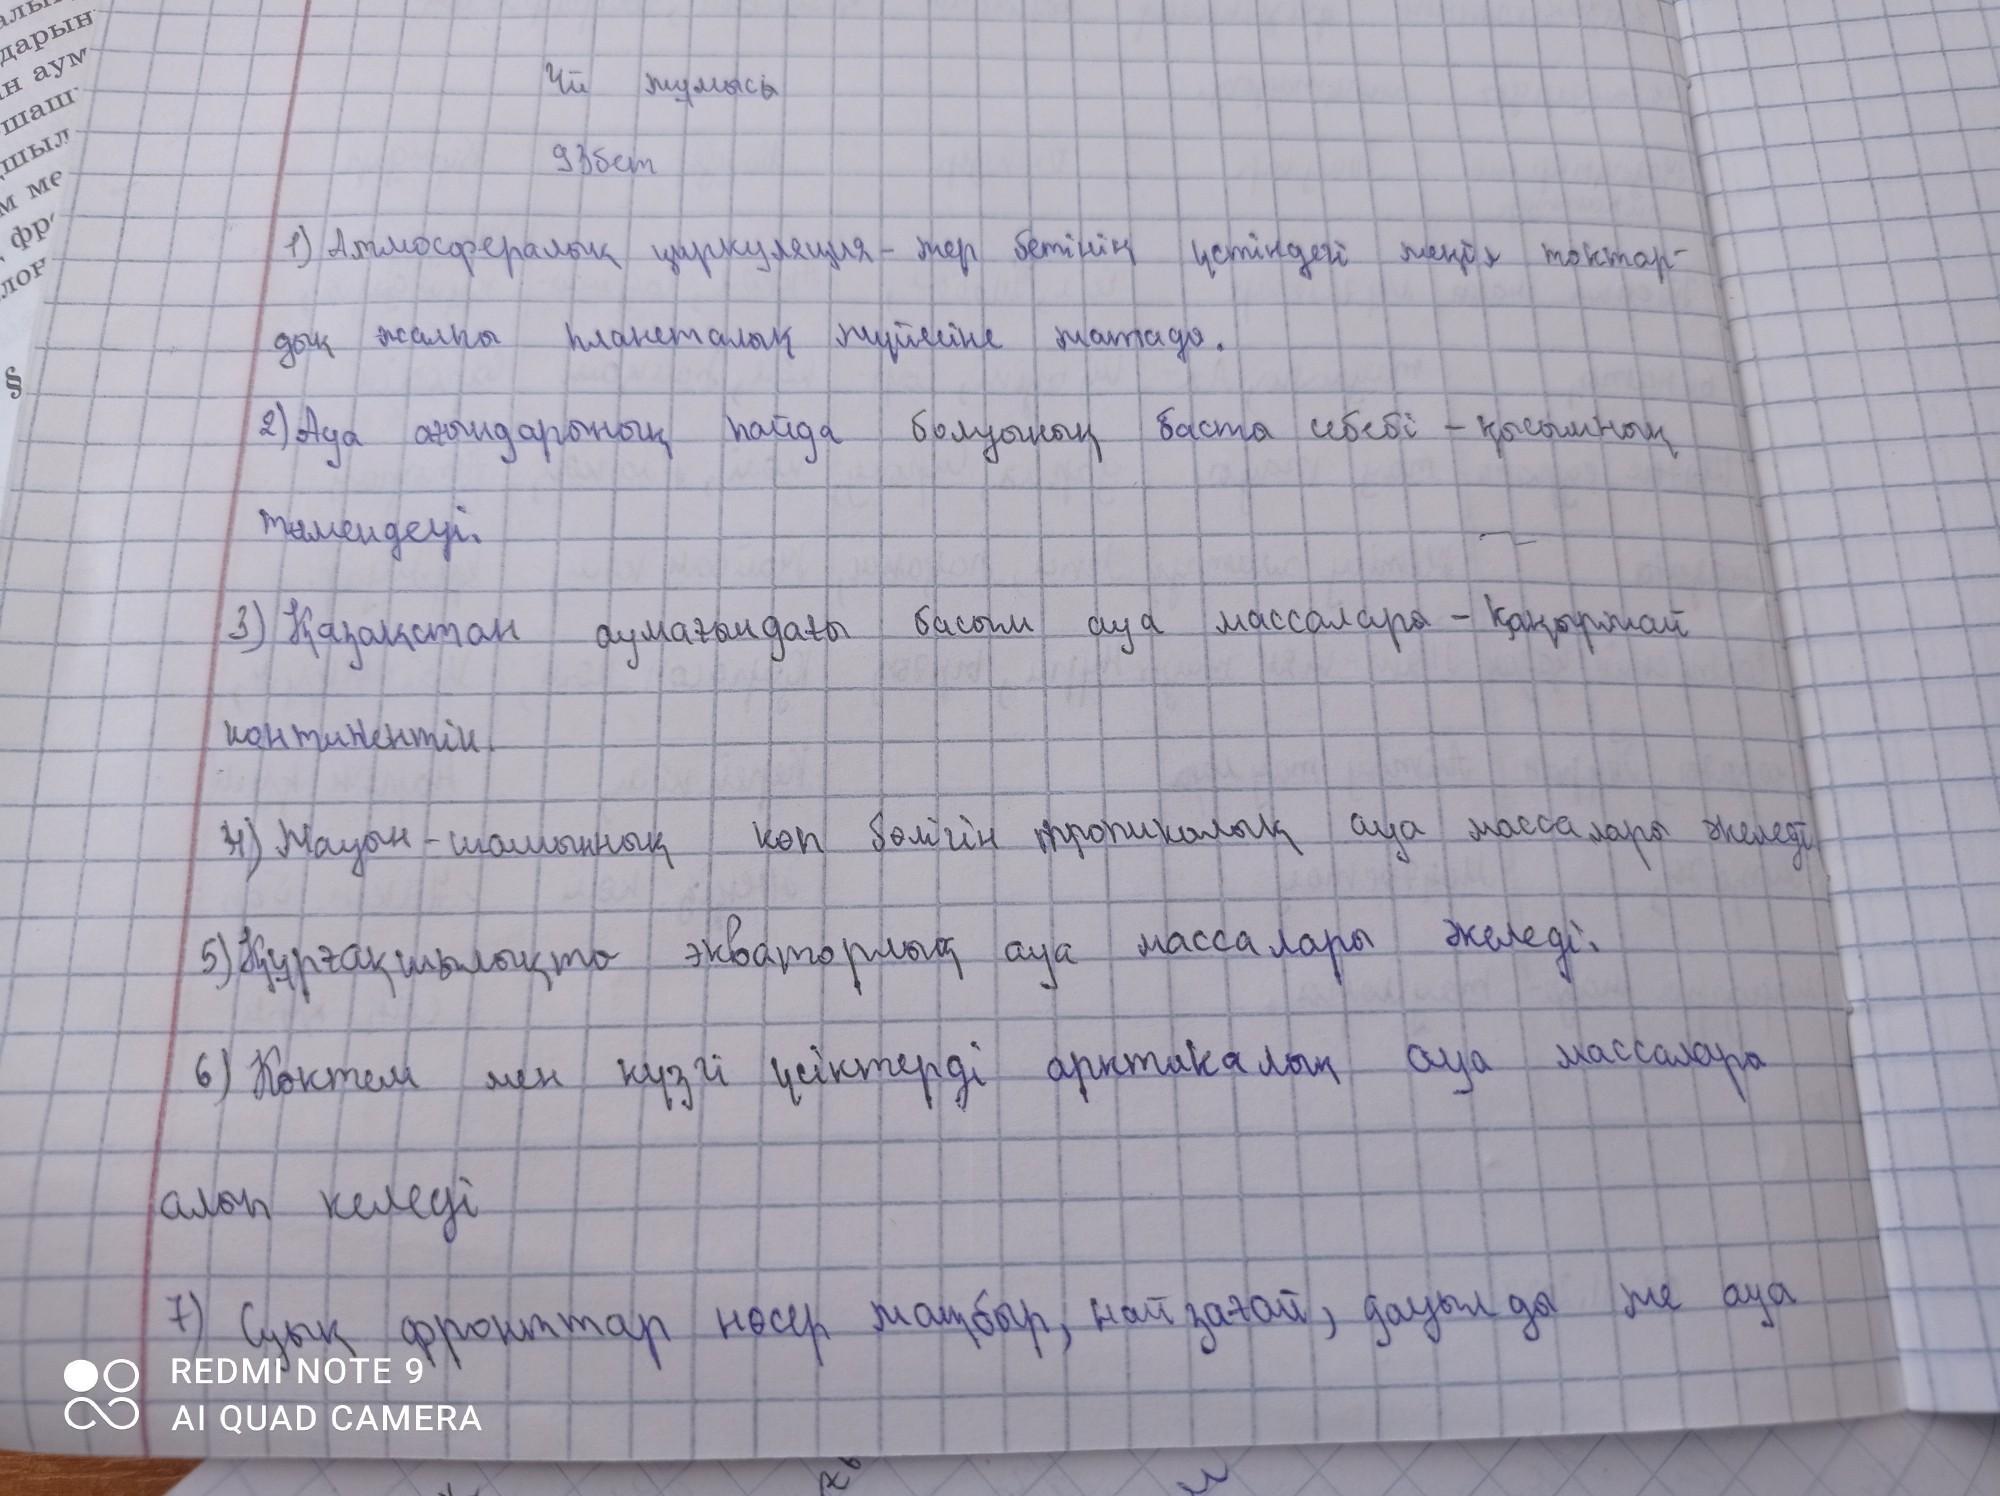 алы
дарын
н аум
шаш
шыл
м ме
фр
лон
§
Үй жұмысы
93бет
1) Атмосфералық циркуляция - жер бетінің үстіндегі токтар-
дың жалпы планеталық жүйесіне жатады.
2) Ауа ағындарының пайда болуының басты себебі - қысымның
төмендеуі.
3) Қазақстан аумағындағы басым ауа массалары - Қоңыржай
континентік.
4) Жауын-шашынның көп бөлігін тропикалық ауа массалары әкеледі
5) Құрғақшылықты экваторлық ауа массалары әкеледі.
6) Көктем мен күзгі үсіктерді арктикалық ауа массалары
алып келеді
7) Суық фронттар нөсер жаңбыр, найзағай, дауылды же ауа
REDMI NOTE 9
AI QUAD CAMERA